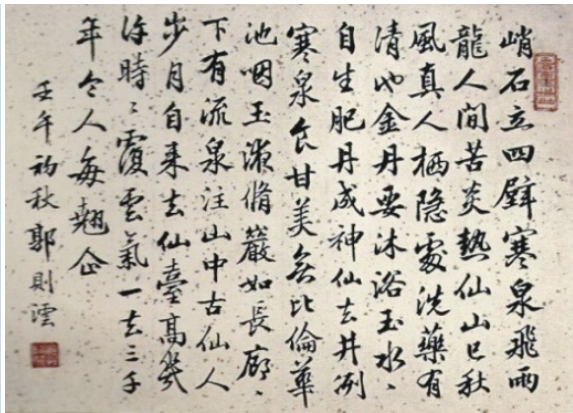 峭石立四壁寒泉飛兩
龍人間苦炎熱仙山已秋
風真人栖隐處洗藥有
清池金丹要沐浴玉水
自生肥丹成神仙去井冽
寒泉食甘美無比倫華
池咽玉液脩巖如長廊
下有流泉注山中古仙人
步月自来去仙臺高幾
許時〻覆雲氣一去三千
年令人每翹企
壬午初秋郭則澐